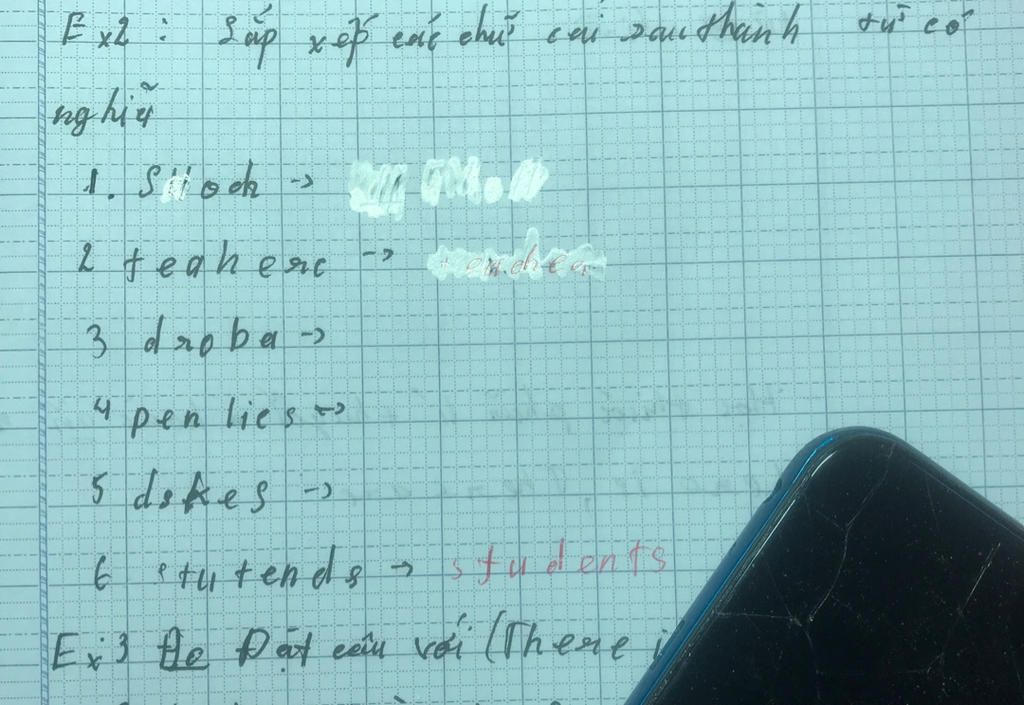 Ex2 : Sắp xếp các chữ cái sau thành từ có
nghiã
1. S och →
2 teaherc → teacher
3 droba →
4 pen lies →
5 dskes →
6 stutends → students
Ex3 Đặt câu với (There i